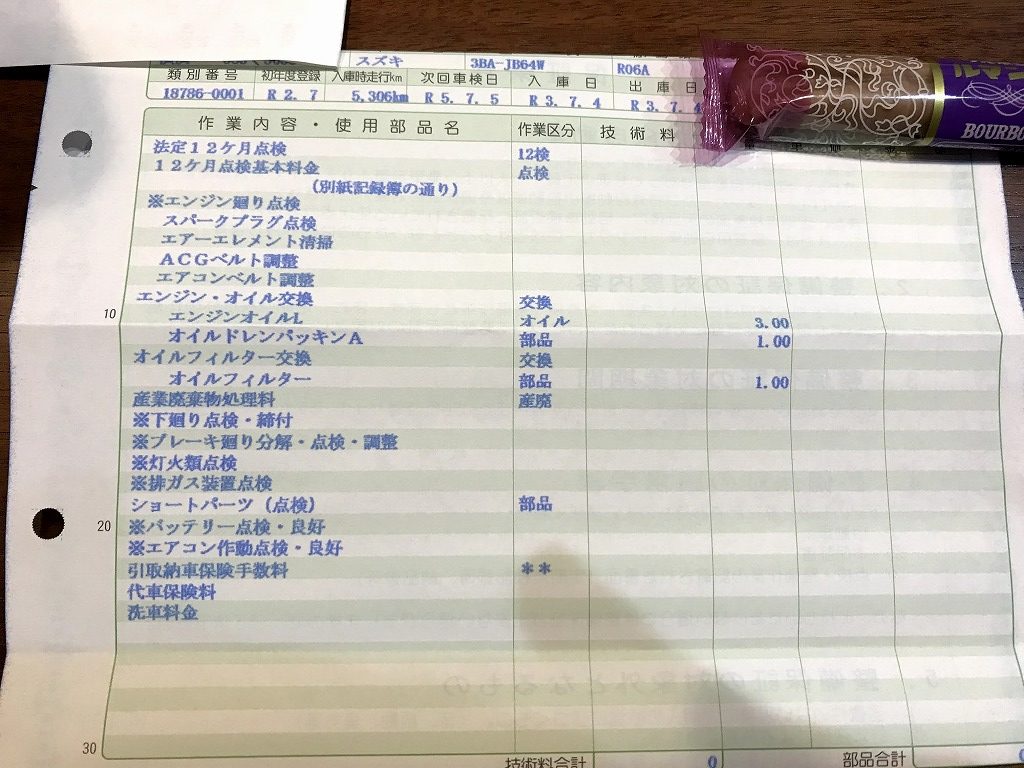 スズキ 3BA-JB64W R06A
類別番号 初年度登録 入庫時走行km 次回車検日 入庫日 出庫日
18786-0001 R 2. 7 5,306km R 5. 7. 5 R 3. 7. 4 R 3. 7. 4
作業内容・使用部品名 作業区分 技術料
法定12ケ月点検 12検
12ケ月点検基本料金 点検
(別紙記録簿の通り)
※エンジン廻り点検
スパークプラグ点検
エアーエレメント清掃
ACGベルト調整
エアコンベルト調整
10 エンジン・オイル交換 交換
エンジンオイルL オイル 3.00
オイルドレンパッキンA 部品 1.00
オイルフィルター交換 交換
オイルフィルター 部品 1.00
産業廃棄物処理料 産廃
※下廻り点検・締付
※ブレーキ廻り分解・点検・調整
※灯火類点検
※排ガス装置点検
ショートパーツ(点検) 部品
20 ※バッテリー点検・良好
※エアコン作動点検・良好
引取納車保険手数料 **
代車保険料
洗車料金
30
技術料合計 0 部品合計 0
BOURBO